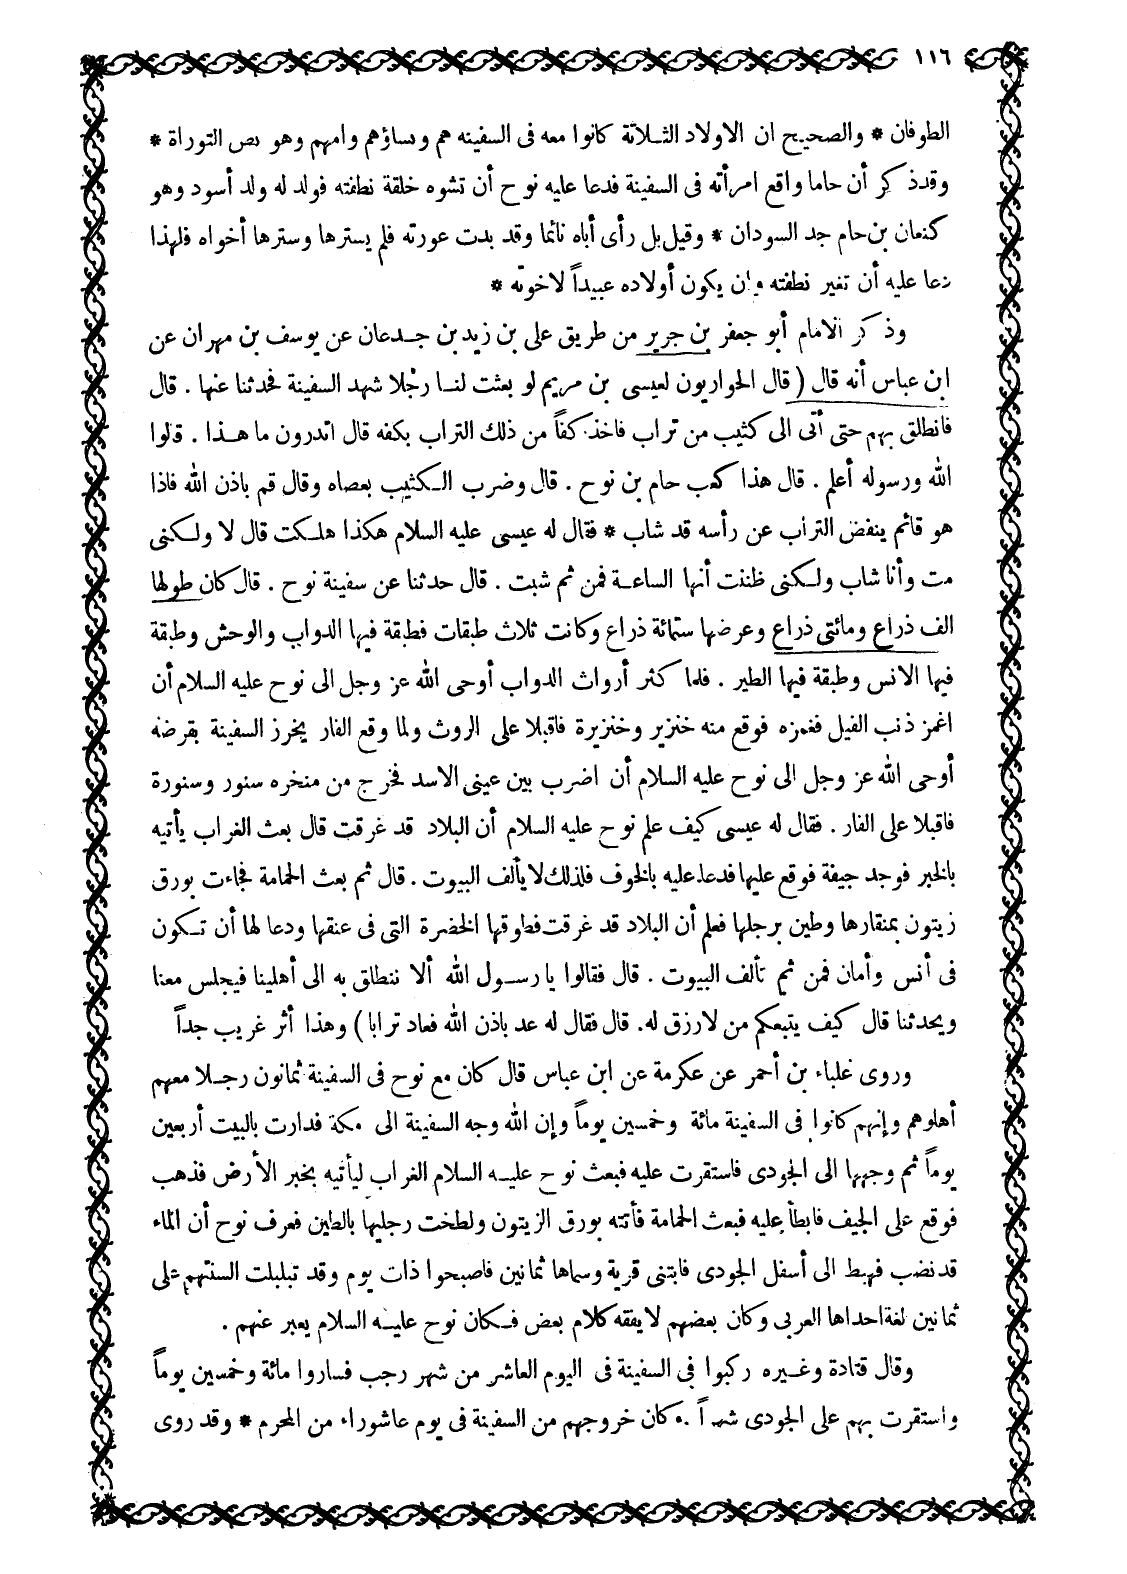 ١١٦
الطوفان * والصحيح ان الاولاد الثلاثة كانوا معه فى السفينه هم ونساؤهم وامهم وهو نص التوراة *
وقد ذكر أن حاما واقع امرأته فى السفينة فدعا عليه نوح أن تشوه خلقة نطفته فولد له ولد أسود وهو
كنعان بن حام جد السودان * وقيل بل رأى أباه نائما وقد بدت عورته فلم يسترها وسترها أخواه فلهذا
دعا عليه أن تغير نطفته وان يكون أولاده عبيداً لاخوته *
وذكر الامام أبو جعفر بن جرير من طريق على بن زيد بن جدعان عن يوسف بن مهران عن
ابن عباس أنه قال ( قال الحواريون لعيسى بن مريم لو بعثت لنا رجلا شهد السفينة فحدثنا عنها . قال
فانطلق بهم حتى أتى الى كثيب من تراب فاخذ كفاً من ذلك التراب بكفه قال اتدرون ما هذا . قلوا
الله ورسوله أعلم . قال هذا كعب حام بن نوح . قال وضرب الكثيب بعصاه وقال قم باذن الله فاذا
هو قائم ينفض التراب عن رأسه قد شاب * فقال له عيسى عليه السلام هكذا هلكت قال لا ولكنى
مت وأنا شاب ولكنى ظننت أنها الساعة فمن ثم شبت . قال حدثنا عن سفينة نوح . قال كان طولها
الف ذراع ومائتى ذراع وعرضها ستمائة ذراع وكانت ثلاث طبقات فطبقة فيها الدواب والوحش وطبقة
فيها الانس وطبقة فيها الطير . فلما كثر أرواث الدواب أوحى الله عز وجل الى نوح عليه السلام أن
اغمز ذنب الفيل فغمزه فوقع منه خنزير وخنزيرة فاقبلا على الروث ولما وقع الفار يخرز السفينة بقرضه
أوحى الله عز وجل الى نوح عليه السلام أن اضرب بين عينى الاسد فخرج من منخره سنور وسنورة
فاقبلا على الفار . فقال له عيسى كيف علم نوح عليه السلام أن البلاد قد غرقت قال بعث الغراب يأتيه
بالخبر فوجد جيفة فوقع عليها فدعا عليه بالخوف فلذلك لا يألف البيوت . قال ثم بعث الحمامة فجاءت بورق
زيتون بمنقارها وطين برجلها فعلم أن البلاد قد غرقت فطوقها الخضرة التى فى عنقها ودعا لها أن تكون
فى أنس وأمان فمن ثم تألف البيوت . قال فقالوا يا رسول الله ألا ننطلق به الى أهلينا فيجلس معنا
ويحدثنا قال كيف يتبعكم من لا رزق له . قال فقال له عد باذن الله فعاد ترابا ) وهذا أثر غريب جداً
وروى غلباء بن أحمر عن عكرمة عن ابن عباس قال كان مع نوح فى السفينة ثمانون رجلا معهم
أهلوهم وإنهم كانوا فى السفينة مائة وخمسين يوماً وإن الله وجه السفينة الى مكة فدارت بالبيت أربعين
يوماً ثم وجهها الى الجودى فاستقرت عليه فبعث نوح عليه السلام الغراب ليأتيه بخبر الأرض فذهب
فوقع على الجيف فابطأ عليه فبعث الحمامة فأتته بورق الزيتون ولطخت رجليها بالطين فعرف نوح أن الماء
قد نضب فهبط الى أسفل الجودى فابتنى قرية وسماها ثمانين فاصبحوا ذات يوم وقد تبلبلت السنتهم على
ثمانين لغة احداها العربى وكان بعضهم لا يفقه كلام بعض فكان نوح عليه السلام يعبر عنهم .
وقال قتادة وغيره ركبوا فى السفينة فى اليوم العاشر من شهر رجب فساروا مائة وخمسين يوماً
واستقرت بهم على الجودى شهراً . وكان خروجهم من السفينة فى يوم عاشوراء من المحرم * وقد روى